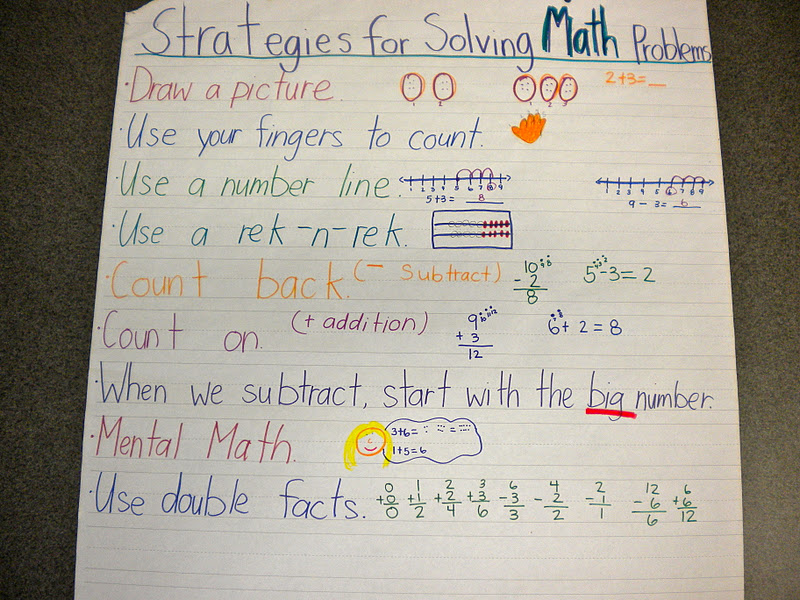 Strategies for Solving Math Problems
· Draw a picture. 1 2 1 2 3 2+3=_
· Use your fingers to count.
· Use a number line. 1 2 3 4 5 6 7 8 9 5+3= 8 1 2 3 4 5 6 7 8 9 9 - 3= 6
· Use a rek-n-rek.
· Count back. (- subtract) 10 9 8 - 2 8 5 4 3 2 -3= 2
· Count on. (+ addition) 9 10 11 12 + 3 12 6 7 8 + 2 = 8
· When we subtract, start with the big number.
· Mental Math. 3+6= =
1+5=6
· Use double facts. 0 +0 0 1 +1 2 2 +2 4 3 +3 6 6 -3 3 4 - 2 2 2 -1 1 12 - 6 6 6 +6 12